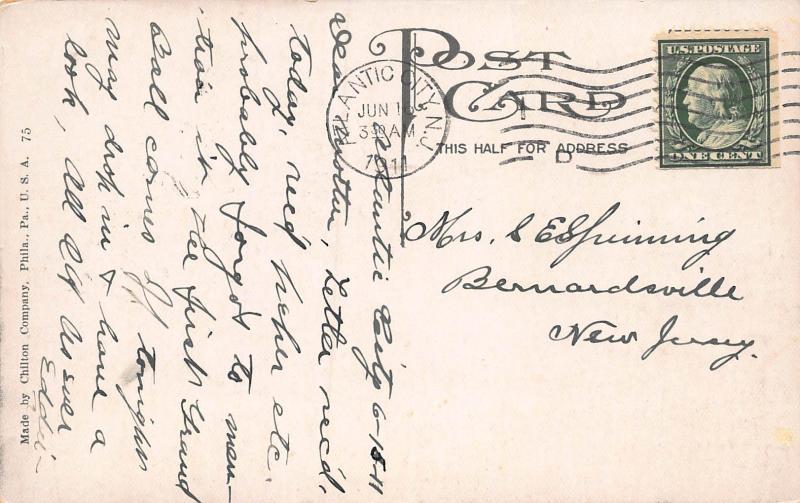 POST CARD
THIS HALF FOR ADDRESS
U.S. POSTAGE
ONE CENT
ATLANTIC CITY, N.J.
JUN 15
3 30 AM
1911
Mrs. S E Spinning
Bernardsville
New Jersey.
Atlantic City 6-15-11
Dear Mother, Letter rec'd,
today, rec'd heher etc.
probably forgot to men-
tion it. The first Grand
Ball comes off tonight
may drop in & have a
look, All OK As ever
Eddie-
Made by Chilton Company, Phila., Pa., U. S. A. 75